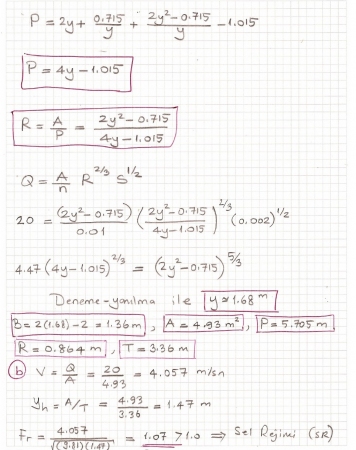 P = 2y + 0.715/y + (2y² - 0.715)/y - 1.015
P = 4y - 1.015
R = A/P = (2y² - 0.715)/(4y - 1.015)
Q = A/n R^2/3 S^1/2
20 = (2y² - 0.715)/0.01 ((2y² - 0.715)/(4y - 1.015))^2/3 (0.002)^1/2
4.47 (4y - 1.015)^2/3 = (2y² - 0.715)^5/3
Deneme-yanılma ile y ≅ 1.68 m
B = 2(1.68) - 2 = 1.36 m, A = 4.93 m², P = 5.705 m
R = 0.864 m, T = 3.36 m
b V = Q/A = 20/4.93 = 4.057 m/sn
yh = A/T = 4.93/3.36 = 1.47 m
Fr = 4.057/√((9.81)(1.47)) = 1.07 > 1.0 ⇒ Sel Rejimi (SR)